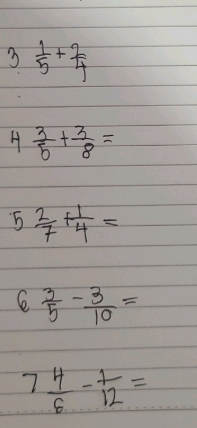 3 1/5 + 2/4
4 3/5 + 3/8 =
5 2/7 + 1/4 =
6 3/5 - 3/10 =
7 4/6 - 1/12 =